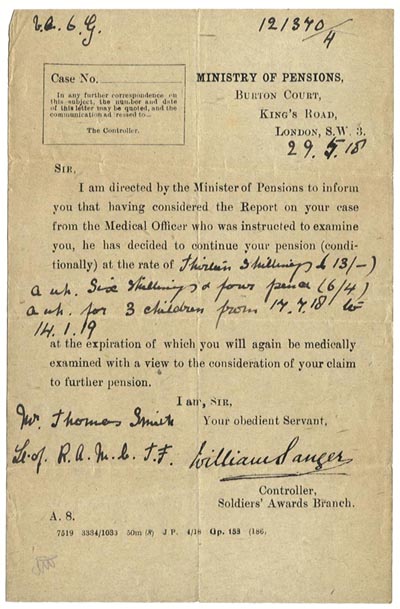 121370/4
Case No.
In any further correspondence on
this subject, the number and date
of this letter may be quoted, and the
communication addressed to—
The Controller.
MINISTRY OF PENSIONS,
BURTON COURT,
KING'S ROAD,
LONDON, S.W. 3.
29.5.18
SIR,
I am directed by the Minister of Pensions to inform
you that having considered the Report on your case
from the Medical Officer who was instructed to examine
you, he has decided to continue your pension (condi-
tionally) at the rate of Thirteen Shillings (13/-)
a wk. Six Shillings & four pence (6/4)
a wk. for 3 children from 17.7.18 to
14.1.19
at the expiration of which you will again be medically
examined with a view to the consideration of your claim
to further pension.
I am, SIR,
Mr. Thomas Smith Your obedient Servant,
R.A.M.C. T.F. William Sanger
Controller,
Soldiers' Awards Branch.
A. 8.
7519 3334/1033 50m (8) J P. 4/18 Gp. 153 (186.